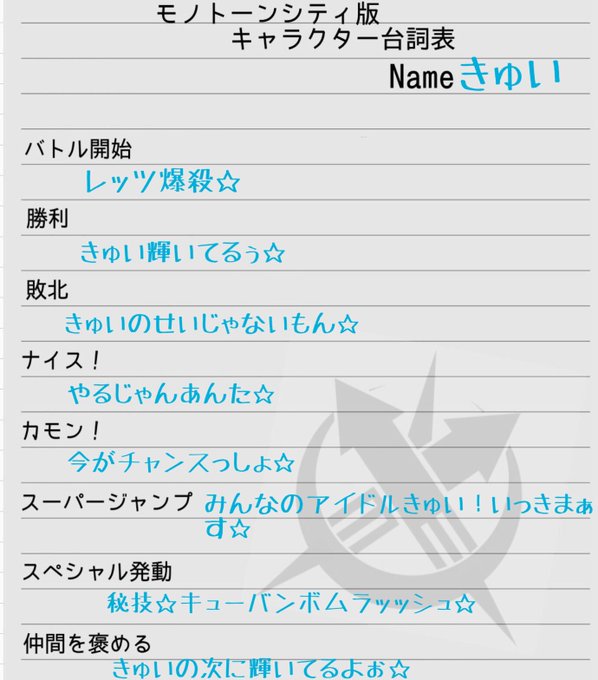 モノトーンシティ版
キャラクター台詞表
Nameきゅい
バトル開始
レッツ爆殺☆
勝利
きゅい輝いてるぅ☆
敗北
きゅいのせいじゃないもん☆
ナイス！
やるじゃんあんた☆
カモン！
今がチャンスっしょ☆
スーパージャンプ みんなのアイドルきゅい！いっきまぁ
す☆
スペシャル発動
秘技☆キューバンボムラッッシュ☆
仲間を褒める
きゅいの次に輝いてるよぉ☆